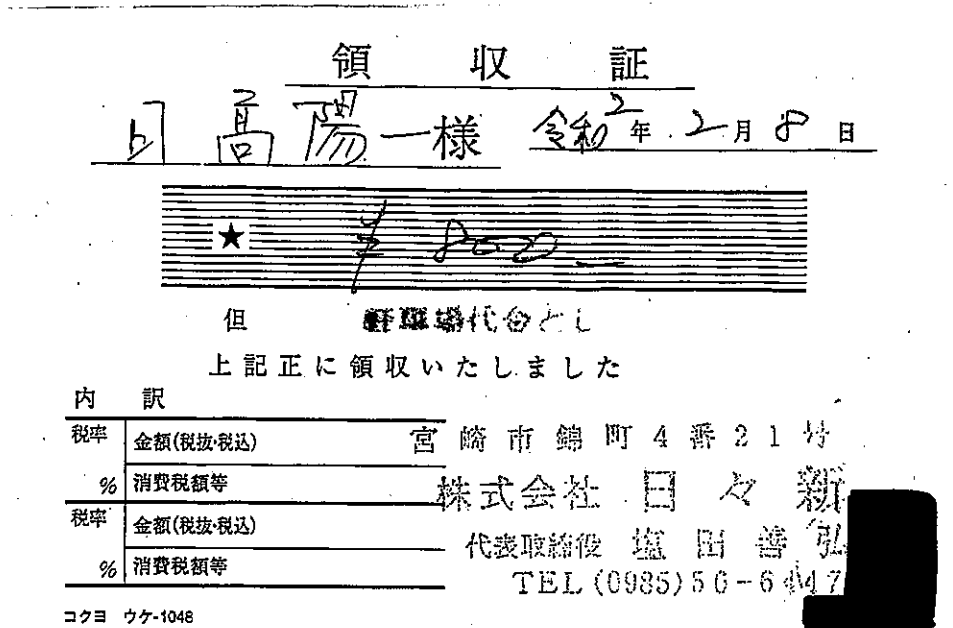 領収証
日高陽一様 令和2年2月8日
★ ¥8000-
但 駐車場代金とし
上記正に領収いたしました
内訳
税率 金額(税抜・税込)
% 消費税額等
税率 金額(税抜・税込)
% 消費税額等
宮崎市錦町4番21号
株式会社 日々新
代表取締役 塩田善弘
TEL(0985)
コクヨ ウケ-1048